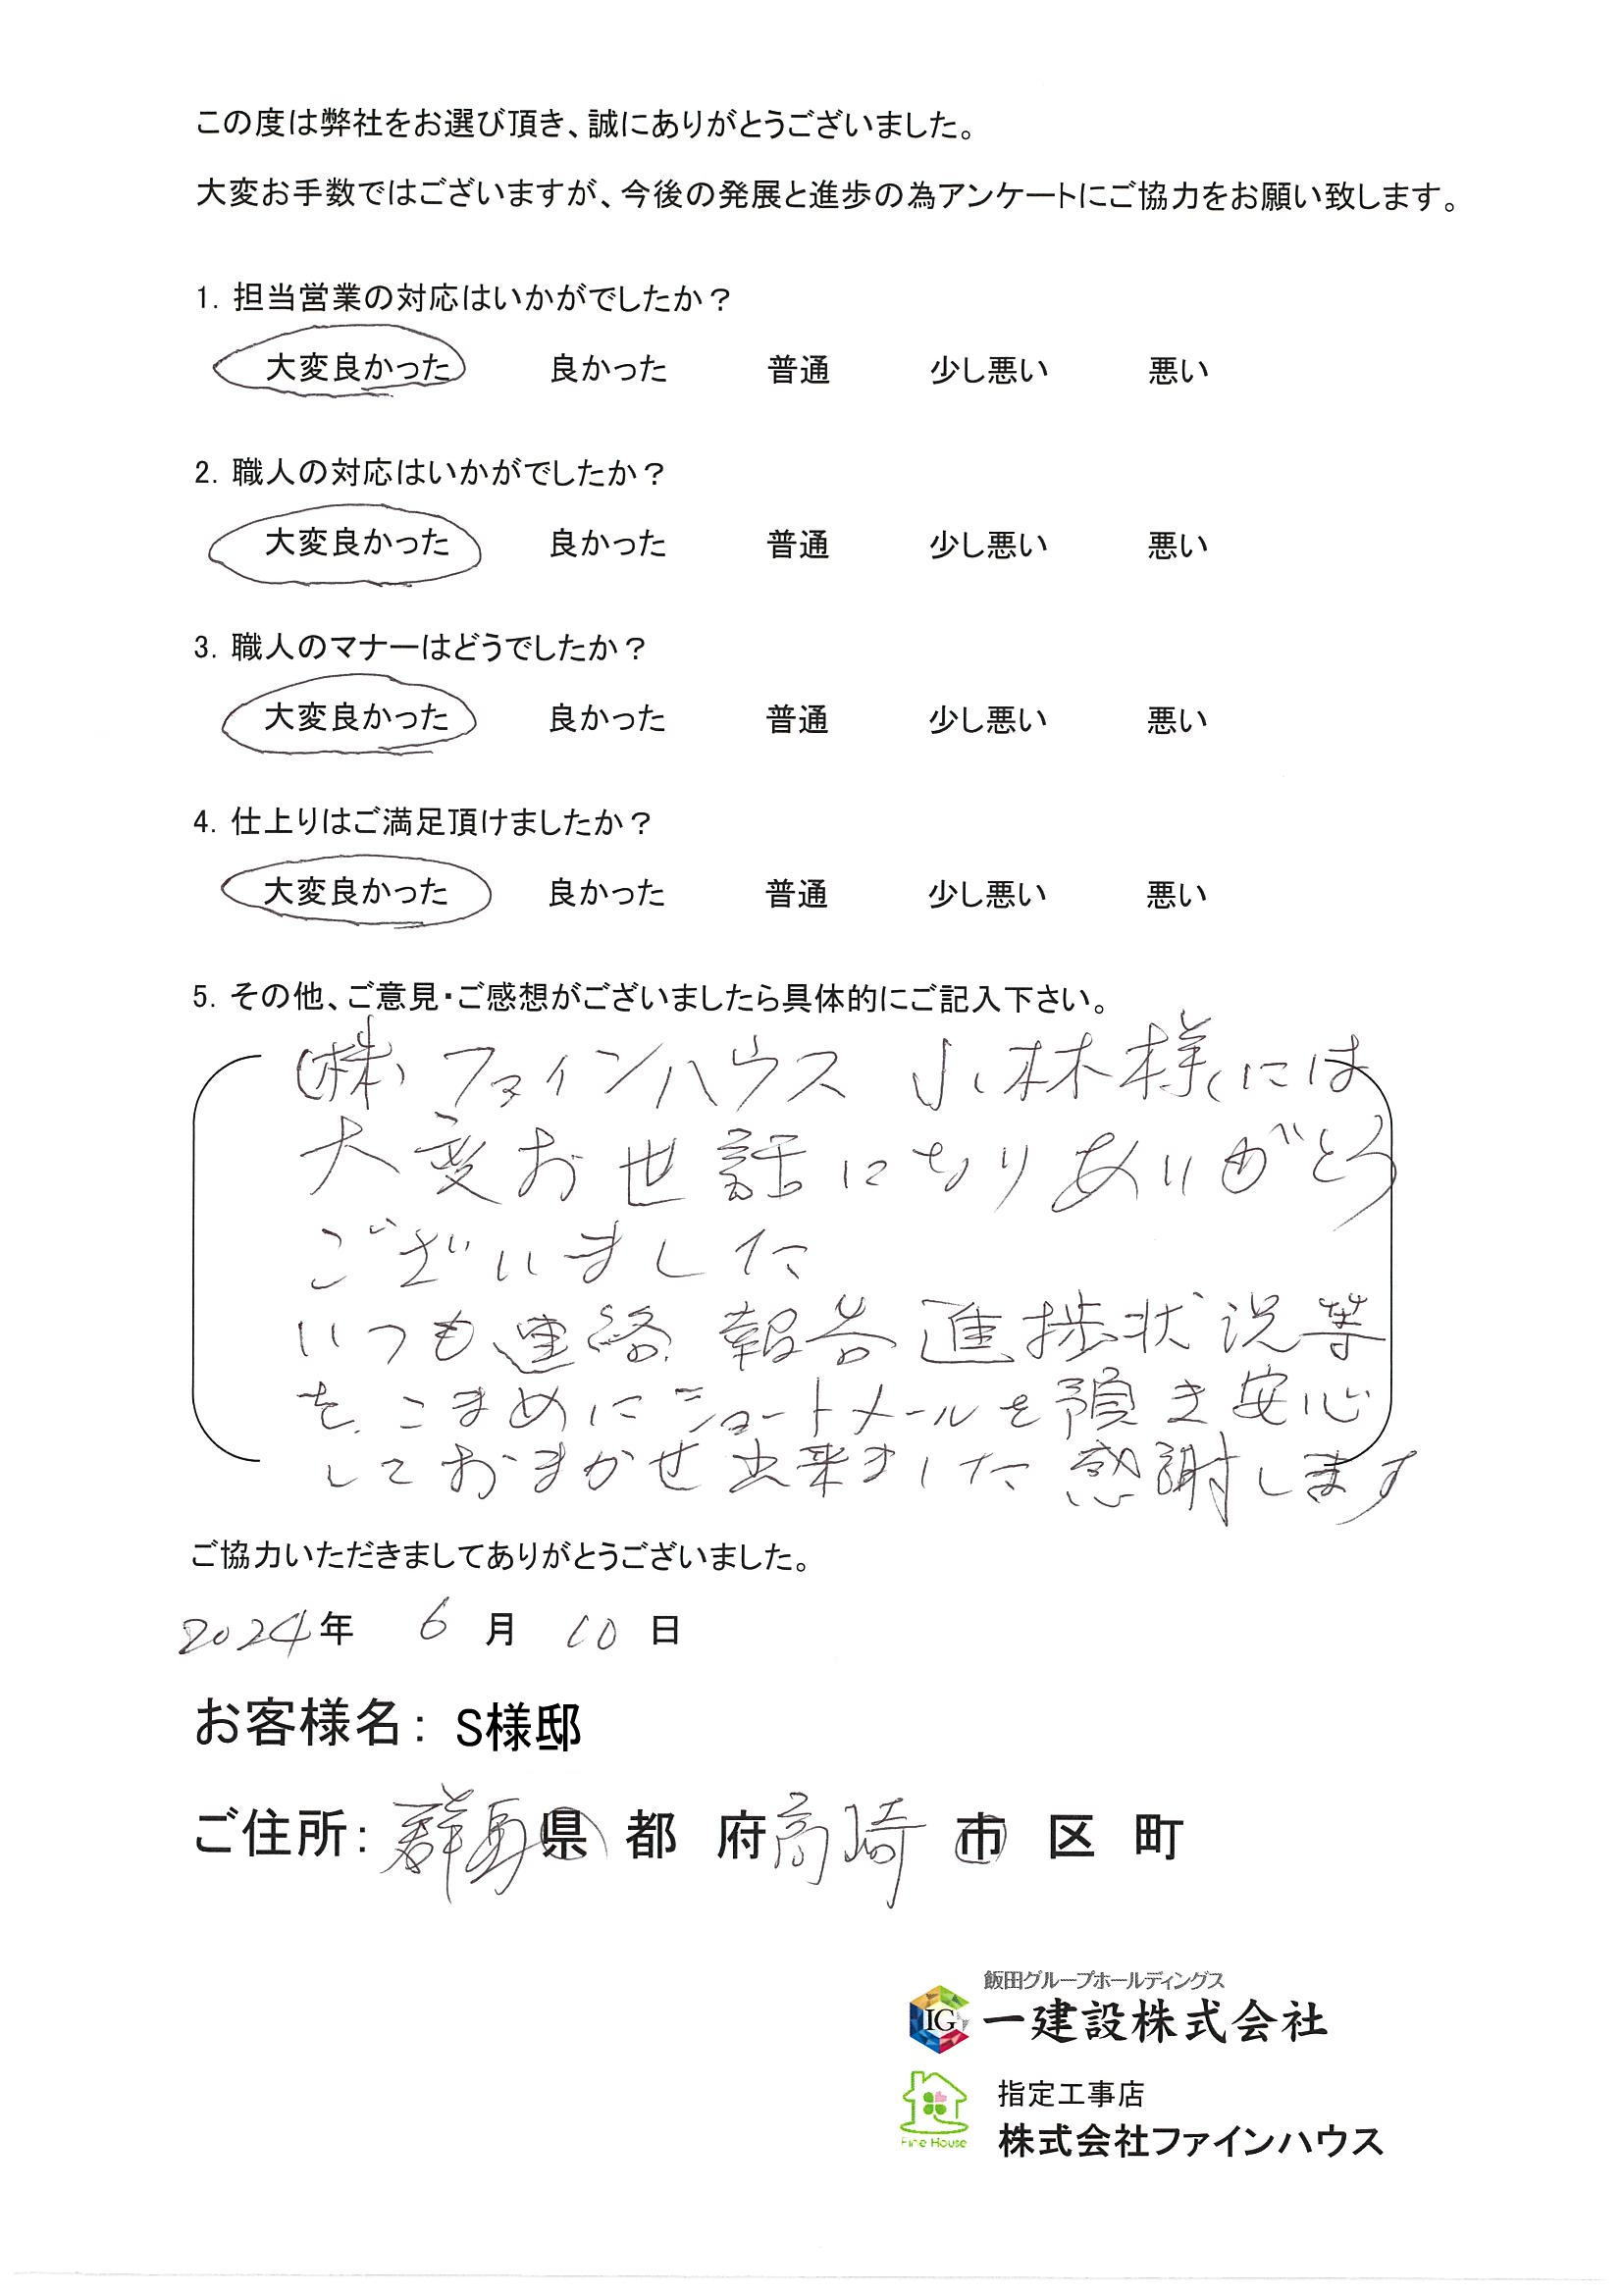 この度は弊社をお選び頂き、誠にありがとうございました。
大変お手数ではございますが、今後の発展と進歩の為アンケートにご協力をお願い致します。
1. 担当営業の対応はいかがでしたか？
大変良かった 良かった 普通 少し悪い 悪い
2. 職人の対応はいかがでしたか？
大変良かった 良かった 普通 少し悪い 悪い
3. 職人のマナーはどうでしたか？
大変良かった 良かった 普通 少し悪い 悪い
4. 仕上りはご満足頂けましたか？
大変良かった 良かった 普通 少し悪い 悪い
5. その他、ご意見・ご感想がございましたら具体的にご記入下さい。
(株)ファインハウス 小林様には
大変お世話になりありがとう
ございました
いつも連絡、報告進捗状況等
を、こまめにショートメールを頂き安心
しておまかせ出来ました 感謝します
ご協力いただきましてありがとうございました。
2024年 6月 10日
お客様名: S様邸
ご住所: 群馬県 都 府 高崎 市 区 町
飯田グループホールディングス
IG 一建設株式会社
指定工事店
Fine House 株式会社ファインハウス